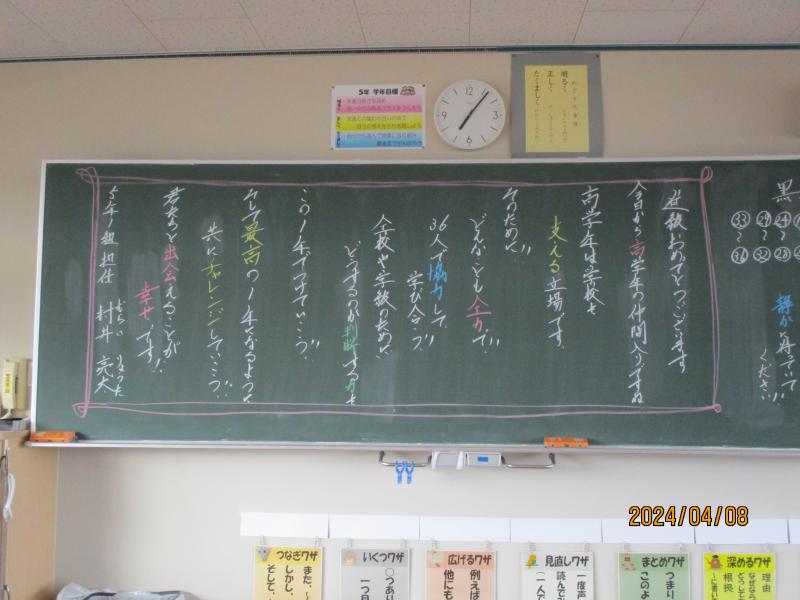 進級おめでとうございます
今日から高学年の仲間入りですね
高学年は学校を
支える立場です。
そのために、
どんなことも全力で!!
36人で協力して
学び合う!!
全校や学級のために
どうするのが
判断する力を
この1年でつけていこう!!
そして最高の1年となるように
共にチャレンジしていこう!!
君たちと出会えることが
幸せです!!
5年1組担任 村井 亮太
むらい りょうた
黒
33 29 24
〜 〜 〜
36 32 28
静かに待っていて
ください
5年 学年目標
明るく
正しく
たくましく
12
3
6
9
2024/04/08
つなぎワザ
また、〜
しかし、
そして、
いくつワザ
〇つあり
一つ目
広げるワザ
例えば
他にも
見直しワザ
一度声
読んで
(一人で
まとめワザ
つまり
このよ
深めるワザ
理由
なぜなら
どうして
根拠
〜に書